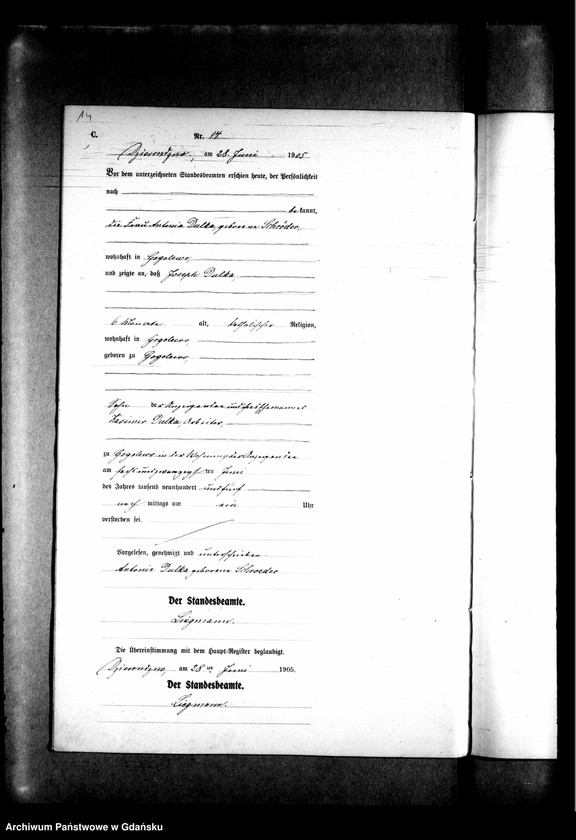 14
C.
Nr. 14
Dzierondzno, am 28. Juni 1905
Vor dem unterzeichneten Standesbeamten erschien heute, der Persönlichkeit
nach
bekannt,
die Frau Antonie Dulka, geborene Schröder,
wohnhaft in Gogolewo,
und zeigte an, daß Joseph Dulka,
6 Monate alt, katholischer Religion,
wohnhaft in Gogolewo,
geboren zu Gogolewo,
Sohn der Anzeigenden und des Ehemannes
Kasimir Dulka, Arbeiter,
zu Gogolewo in der Wohnung der Anzeigenden
am sechsundzwanzigsten Juni
des Jahres tausend neunhundert und fünf
nach mittags um ein Uhr
verstorben sei.
Vorgelesen, genehmigt und unterschrieben
Antonie Dulka geborene Schroeder
Der Standesbeamte.
Liegmann.
Die Übereinstimmung mit dem Haupt-Register beglaubigt.
Dzierondzno, am 28 ten Juni 1905.
Der Standesbeamte.
Liegmann.
Archiwum Państwowe w Gdańsku